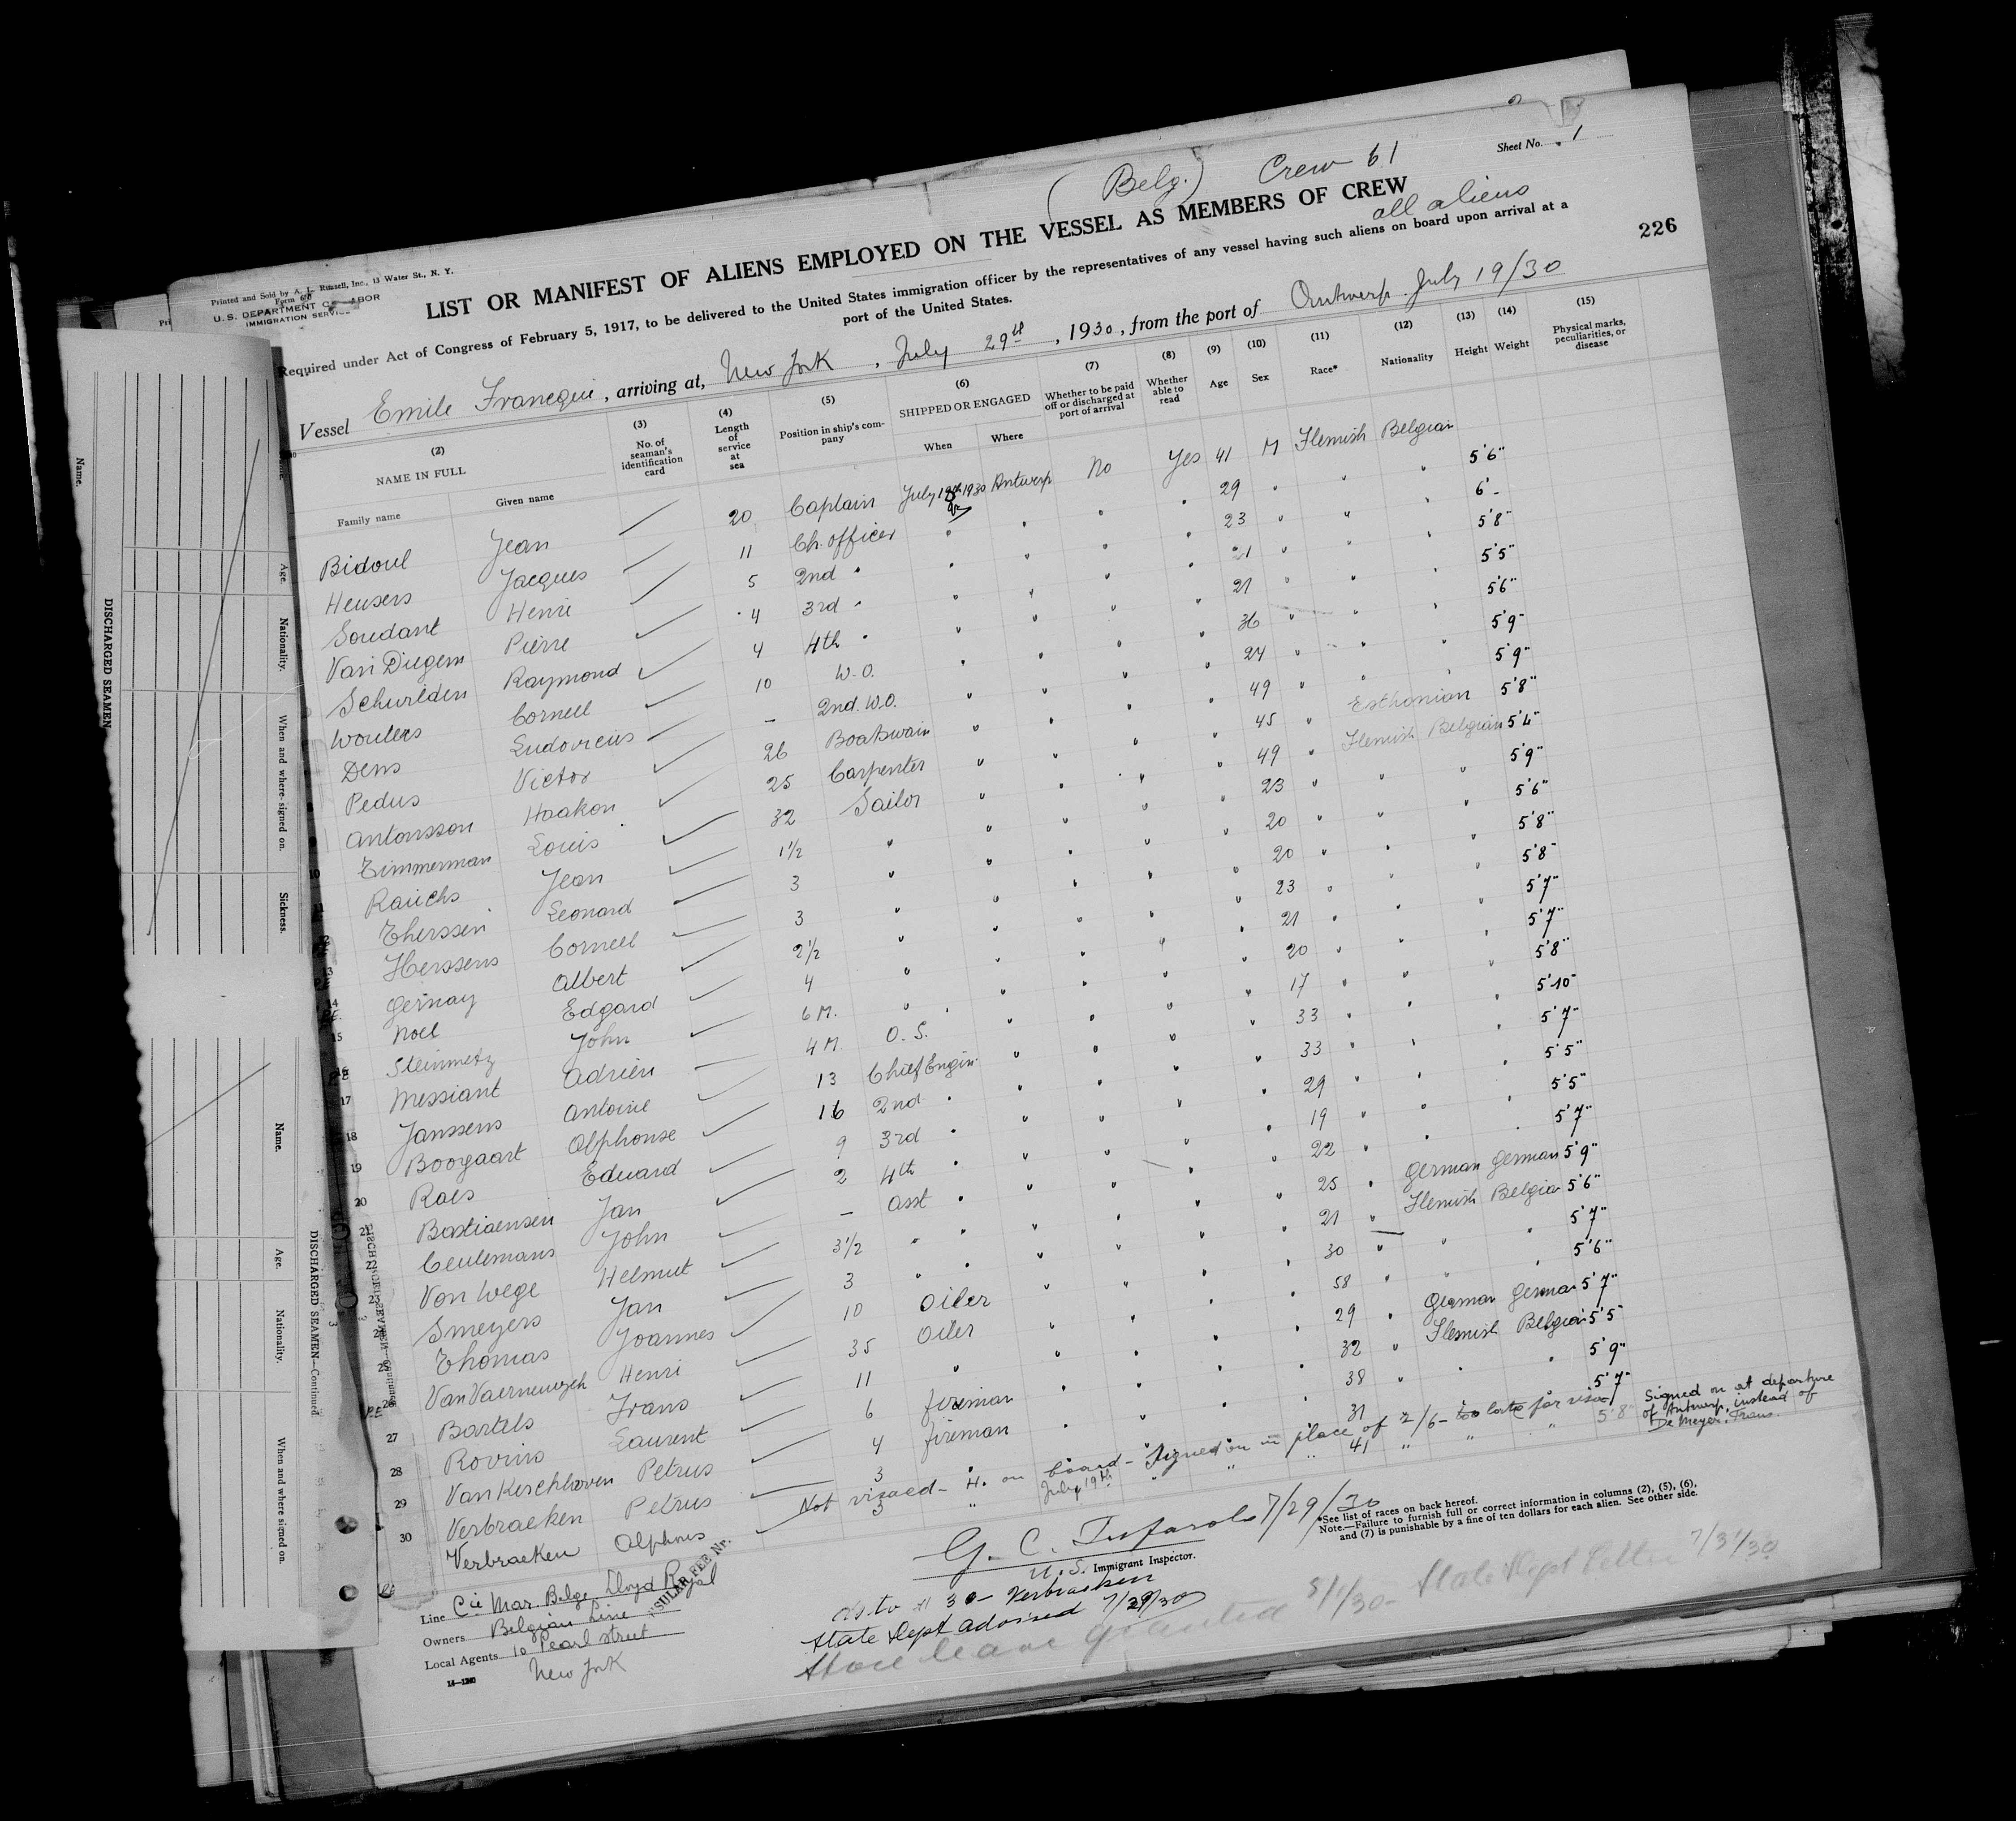 Sheet No. 1
(Belg.) Crew 61
all aliens
226
Printed and Sold by A. L. Russell, Inc., 13 Water St., N. Y.
U. S. DEPARTMENT OF LABOR
IMMIGRATION SERVICE
LIST OR MANIFEST OF ALIENS EMPLOYED ON THE VESSEL AS MEMBERS OF CREW
Required under Act of Congress of February 5, 1917, to be delivered to the United States immigration officer by the representatives of any vessel having such aliens on board upon arrival at a
port of the United States.
Vessel Emile Francqui, arriving at, New York, July 29th, 1930, from the port of Antwerp July 19/30
(2) NAME IN FULL
Family name Given name
(3) No. of seaman's identification card
(4) Length of service at sea
(5) Position in ship's company
(6) SHIPPED OR ENGAGED
When Where
(7) Whether to be paid off or discharged at port of arrival
(8) Whether able to read
(9) Age
(10) Sex
(11) Race*
(12) Nationality
(13) Height
(14) Weight
(15) Physical marks, peculiarities, or disease
Bidoul Jean 20 Captain July 1930 Antwerp No Yes 41 M Flemish Belgian 5'6"
Heusers Jacques 11 Ch. officer " " " " 29 " " " 6'-
Soudant Henri 5 2nd " " " " " 23 " " " 5'8"
Van Diegem Pierre 4 3rd " " " " " 21 " " " 5'5"
Raymond 4 4th " " " " " 21 " " " 5'6"
Wouters Corneel 10 W.O. " " " " 36 " " " 5'9"
Dens Ludovicus - 2nd. W.O. " " " " 24 " " " 5'9"
Pedus Victor 26 Boatswain " " " " 49 " Esthonian 5'8"
Antonsson Haakon 25 Carpenter " " " " 45 " Flemish Belgian 5'4"
10 Zimmerman Louis 32 Sailor " " " " 49 " " " 5'9"
11 Rauchs Jean 1½ " " " " " 23 " " " 5'6"
12 Leonard 3 " " " " " 20 " " " 5'8"
13 Herssens Corneel 3 " " " " " 20 " " " 5'8"
14 Gernay Albert 2½ " " " " " 23 " " " 5'7"
15 Noel Edgard 4 " " " " " 21 " " " 5'7"
16 Steinmetz John 6 M. " " " " " 20 " " " 5'8"
17 Messiant Adrien 4 M. O. S. " " " " 17 " " " 5'10"
18 Janssens Antoine 13 Chief Engin. " " " " 33 " " " 5'7"
19 Boogaart Alphonse 16 2nd " " " " " 33 " " " 5'5"
20 Raes Eduard 9 3rd " " " " " 29 " " " 5'5"
21 Bastiaensen Jan 2 4th " " " " " 19 " " " 5'7"
22 Ceulemans John - asst " " " " " 22 " German German 5'9"
23 Von Wege Helmut 3½ " " " " " " 25 " Flemish Belgian 5'6"
24 Smeyers Jan 3 " " " " " " 21 " " " 5'7"
25 Thomas Joannes 10 Oiler " " " " 30 " " " 5'6"
26 Henri 35 Oiler " " " " 58 " German German 5'7"
27 Bartels Frans 11 " " " " " 29 " Flemish Belgian 5'5"
28 Rovins Laurent 6 fireman " " " " 32 " " " 5'9"
29 Van Kerckhoven Petrus 4 fireman " " " " 38 " " " 5'7"
30 Verbraeken Petrus 3 " 31
Not visaed - on board - Signed on in place of 2/6 - too late for visa
Verbraeken Alphons 3 " July 19th " " " 41 " " " 5'8"
Signed on at departure
of Antwerp, instead of
De Meyer, Frans.
G. C. Tufarolo 7/29/30
U. S. Immigrant Inspector.
*See list of races on back hereof.
Note.—Failure to furnish full or correct information in columns (2), (5), (6),
and (7) is punishable by a fine of ten dollars for each alien. See other side.
Line Cie Mar. Belge Lloyd Royal
Owners Belgian Line
Local Agents 10 Pearl street
New York
14—1240
as to # 30 - Verbraeken
State Dept advised 7/29/30
Shore leave granted 8/1/30 - State Dept letter 7/31/30
DISCHARGED SEAMEN
Name. Age. Nationality. When and where signed on. Sickness.
DISCHARGED SEAMEN—Continued
Name. Age. Nationality. When and where signed on.